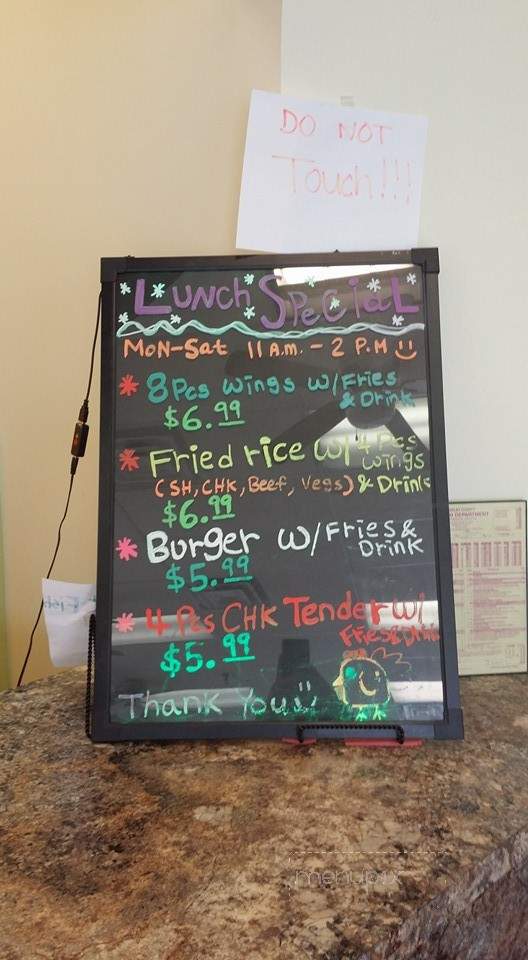 DO NOT
Touch!!!
LUNCH SPeCiaL
MON-Sat 11 A.m. - 2 P.M
8 Pcs Wings w/ Fries
& Drink
$6.99
Fried rice w/ 4 Pcs
wings
(SH, CHK, Beef, Vegs) & Drink
$6.99
Burger w/ Fries &
Drink
$5.99
4 Pcs CHK Tender w/
Fries & Drink
$5.99
Thank You
menupix